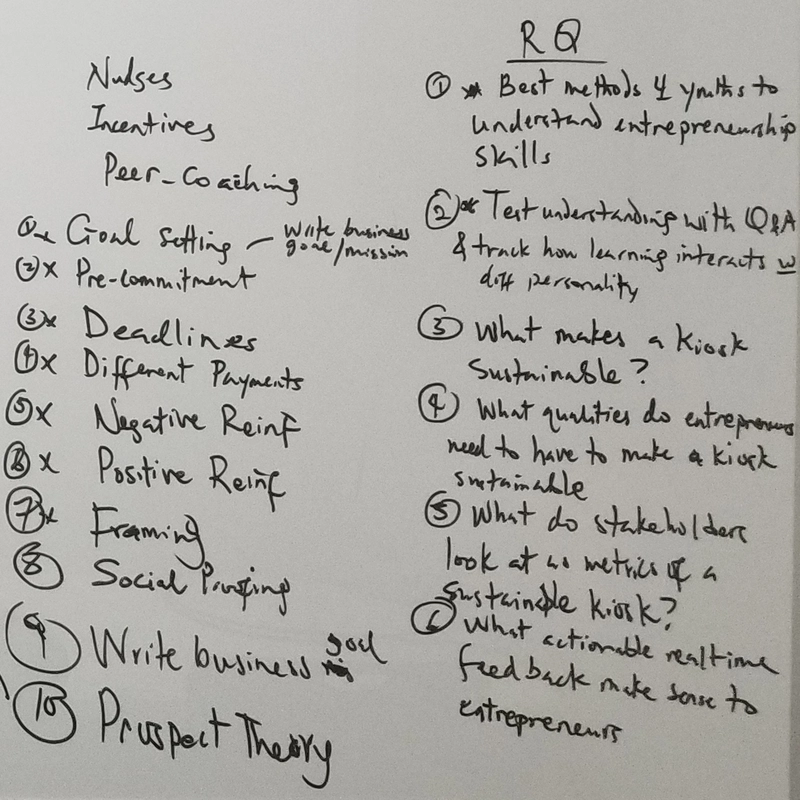 Nudges
Incentives
Peer-Coaching
①x Goal Setting — Write business
goal/mission
②x Pre-commitment
③x Deadlines
④x Different Payments
⑤x Negative Reinf
⑥x Positive Reinf
⑦x Framing
⑧ Social Proofing
⑨ Write business goal
⑩ Prospect Theory
RQ
① * Best methods 4 youths to
understand entrepreneurship
skills
② * Test understanding with Q&A
& track how learning interacts w
diff personality
③ What makes a Kiosk
Sustainable?
④ What qualities do entrepreneurs
need to have to make a kiosk
sustainable
⑤ What do stakeholders
look at as metrics of a
Sustainable Kiosk?
⑥ What actionable realtime
feedback make sense to
entrepreneurs